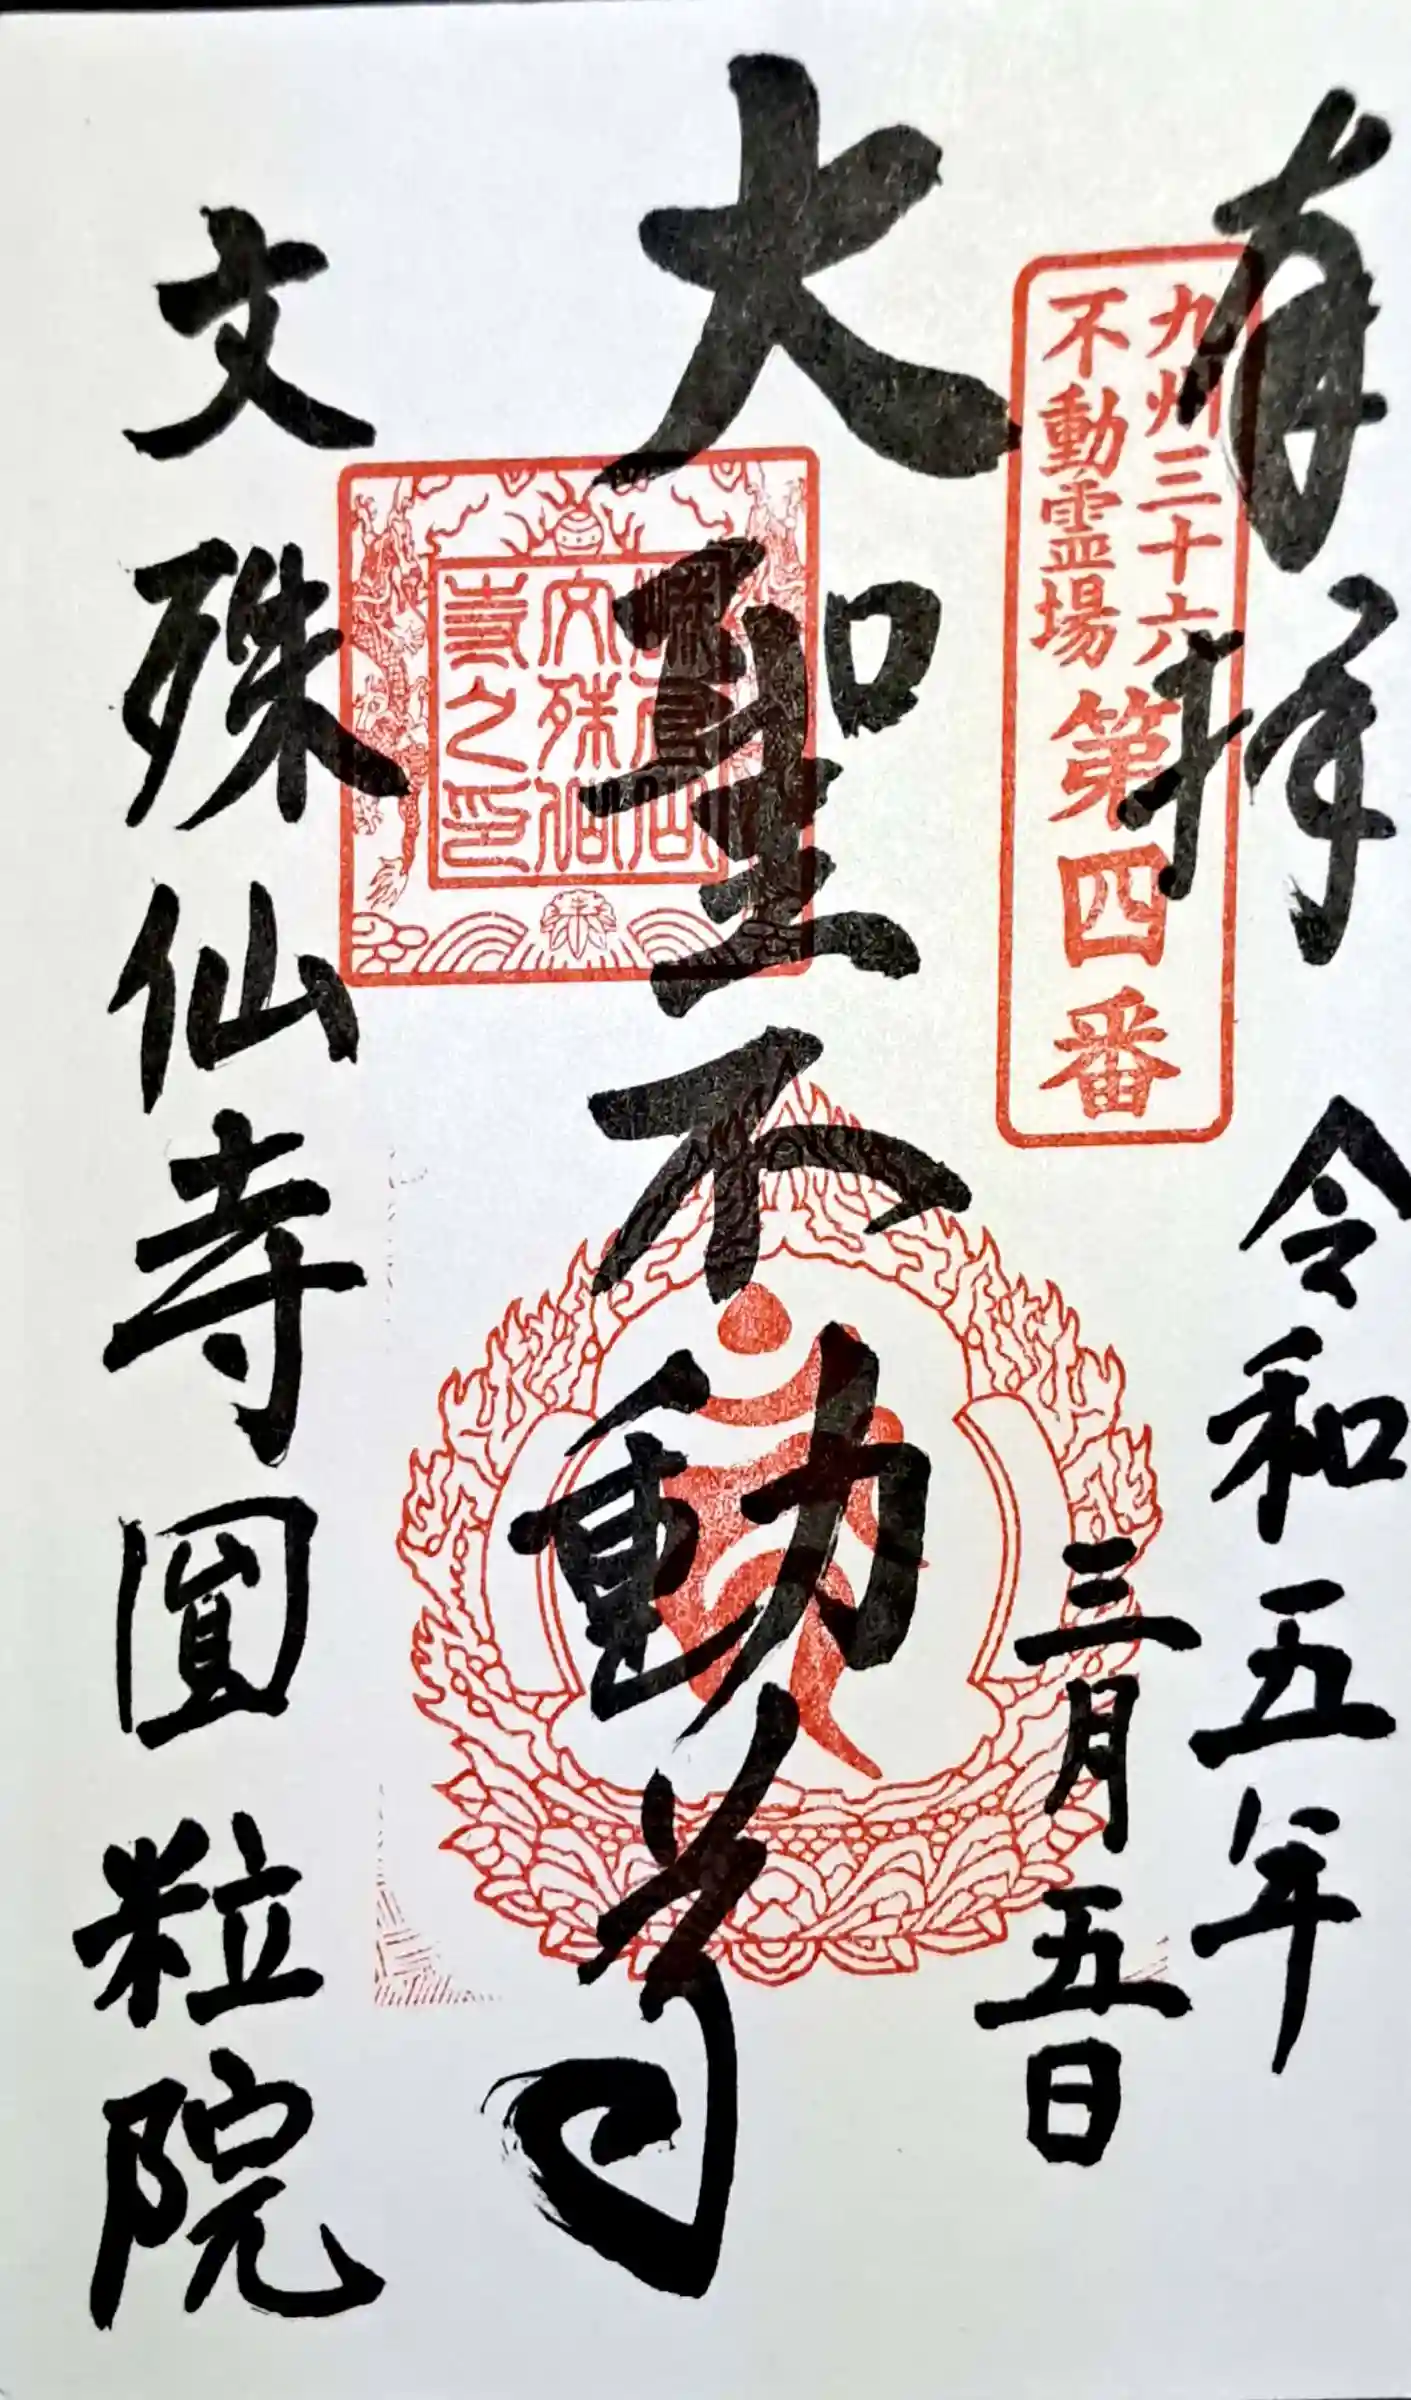 奉拝
令和五年
三月五日
九州三十六
不動霊場
第四番
大聖不動尊
峨眉山
文殊仙
寺之印
文殊仙寺圓粒院